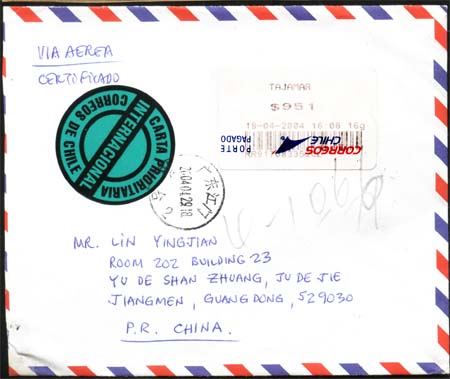 VIA AEREA
CERTIFICADO
TAJAMAR
$951
19-04-2004 16:08 16g
CORREOS
CHILE
PORTE
PAGADO
CARTA PRIORITARIA
INTERNACIONAL
CORREOS DE CHILE
广东江门
MR. LIN YINGJIAN
ROOM 202 BUILDING 23
YU DE SHAN ZHUANG, JU DE JIE
JIANGMEN, GUANGDONG, 529030
P.R. CHINA.